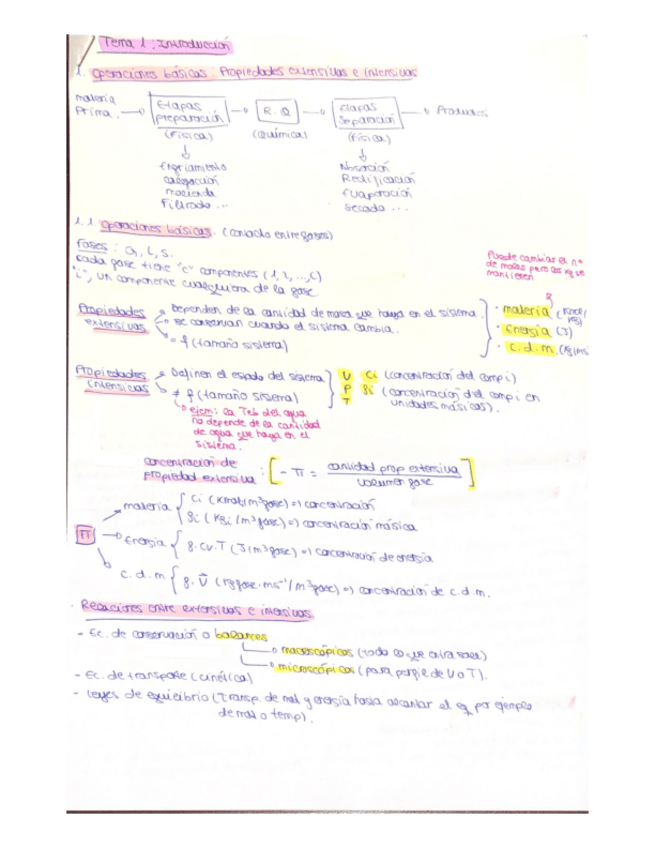 Tema 1: Introducción
1. Operaciones básicas. Propiedades extensivas e intensivas
materia Prima. → Etapas preparación → R.Q → Etapas Separación → Productos
(Física) (Química) (Física)
Enfriamiento Absorción
calefacción Rectificación
molienda Evaporación
Filtrado... secado ...
1.1 Operaciones básicas. (contacto entre fases)
Fases: G, L, S.
cada fase tiene "c" componentes (1, 2, ..., C)
"i", un componente cualquiera de la fase
Puede cambiar el nº
de moles pero los kg se
mantienen
Propiedades extensivas
Dependen de la cantidad de masa que haya en el sistema.
se conservan cuando el sistema cambia.
f (tamaño sistema)
· materia (Kmol/kg)
· Energía (J)
· c.d.m. (Kg m/s
Propiedades intensivas
Definen el estado del sistema
≠ f (tamaño sistema)
ejem: la Teb del agua
no depende de la cantidad
de agua que haya en el
sistema.
U Ci (concentración del comp i)
P ρi (concentración del comp i en
T unidades másicas).
concentración de
propiedad extensiva : [ - π = cantidad prop extensiva / volumen fase ]
π
materia { Ci (Kmoli/m³fase) => concentración
ρi (Kgi/m³fase) => concentración másica
Energía { ρ.Cv.T (J/m³fase) => concentración de energía
c.d.m { ρ.V (Kg fase.ms⁻¹/m³fase) => concentración de c.d.m.
· Relaciones entre extensivas e intensivas.
- Ec. de conservación o balances
macroscópicos (todo lo que entra sale)
microscópicos (para perfil de U o T).
- Ec. de transporte (cinética)
- Leyes de equilibrio (Transp. de mat y energía hasta alcanzar el eq por ejemplo
de mat o temp).